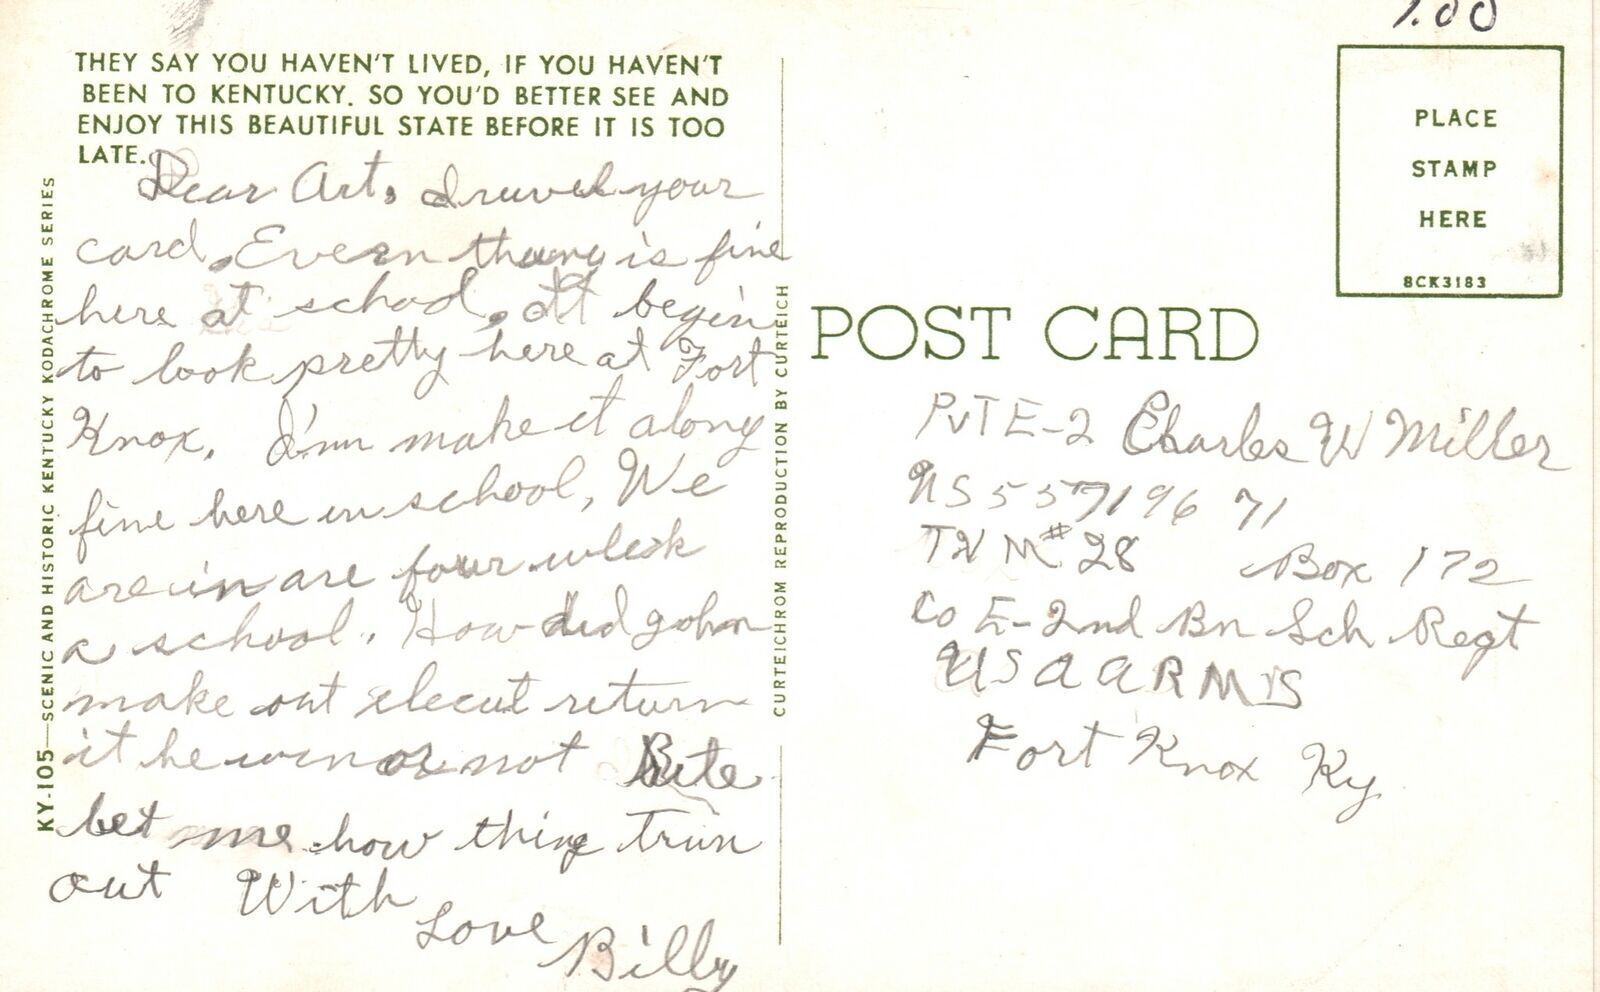 1.00
THEY SAY YOU HAVEN'T LIVED, IF YOU HAVEN'T
BEEN TO KENTUCKY. SO YOU'D BETTER SEE AND
ENJOY THIS BEAUTIFUL STATE BEFORE IT IS TOO
LATE.
Dear Art, I your
card. is fine
here at school, It begin
to look pretty here at Fort
Knox. I'm make it along
fine here in school, We
are in are four
a school. How did John
make out return
it he win or not
let me how thing Trun
out With
Love
Billy
KY-105—SCENIC AND HISTORIC KENTUCKY KODACHROME SERIES
CURTEICHROM REPRODUCTION BY CURTEICH
PLACE
STAMP
HERE
8CK3183
POST CARD
PvT E-2 Charles W Miller
55719671
#28 Box 172
Co E-2nd Bn Sch Regt
USAARMS
Fort Knox Ky